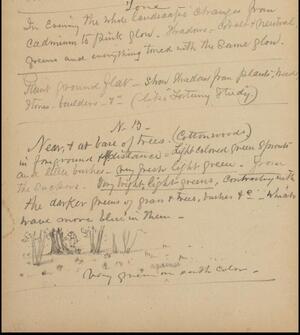 Tone —
In Evening the whole landscape changes from
Cadmium to pink glow. Shadows – Cobalt & Neutral
greens and everything toned with the same glow.
Paint ground flat – Show Shadows from plants, weeds
Stones – boulders – &c – (like Fortuny Study)
N. B –
Near, & at base of trees. (Cottonwoods)
in foreground & distance – Light colored green sprouts
and little bushes – very fresh light green. – From
the suckers. Very bright, light greens, Contrasting with
the darker greens of grass & trees, bushes &c –
have more blue in them –
Very green on earth color –